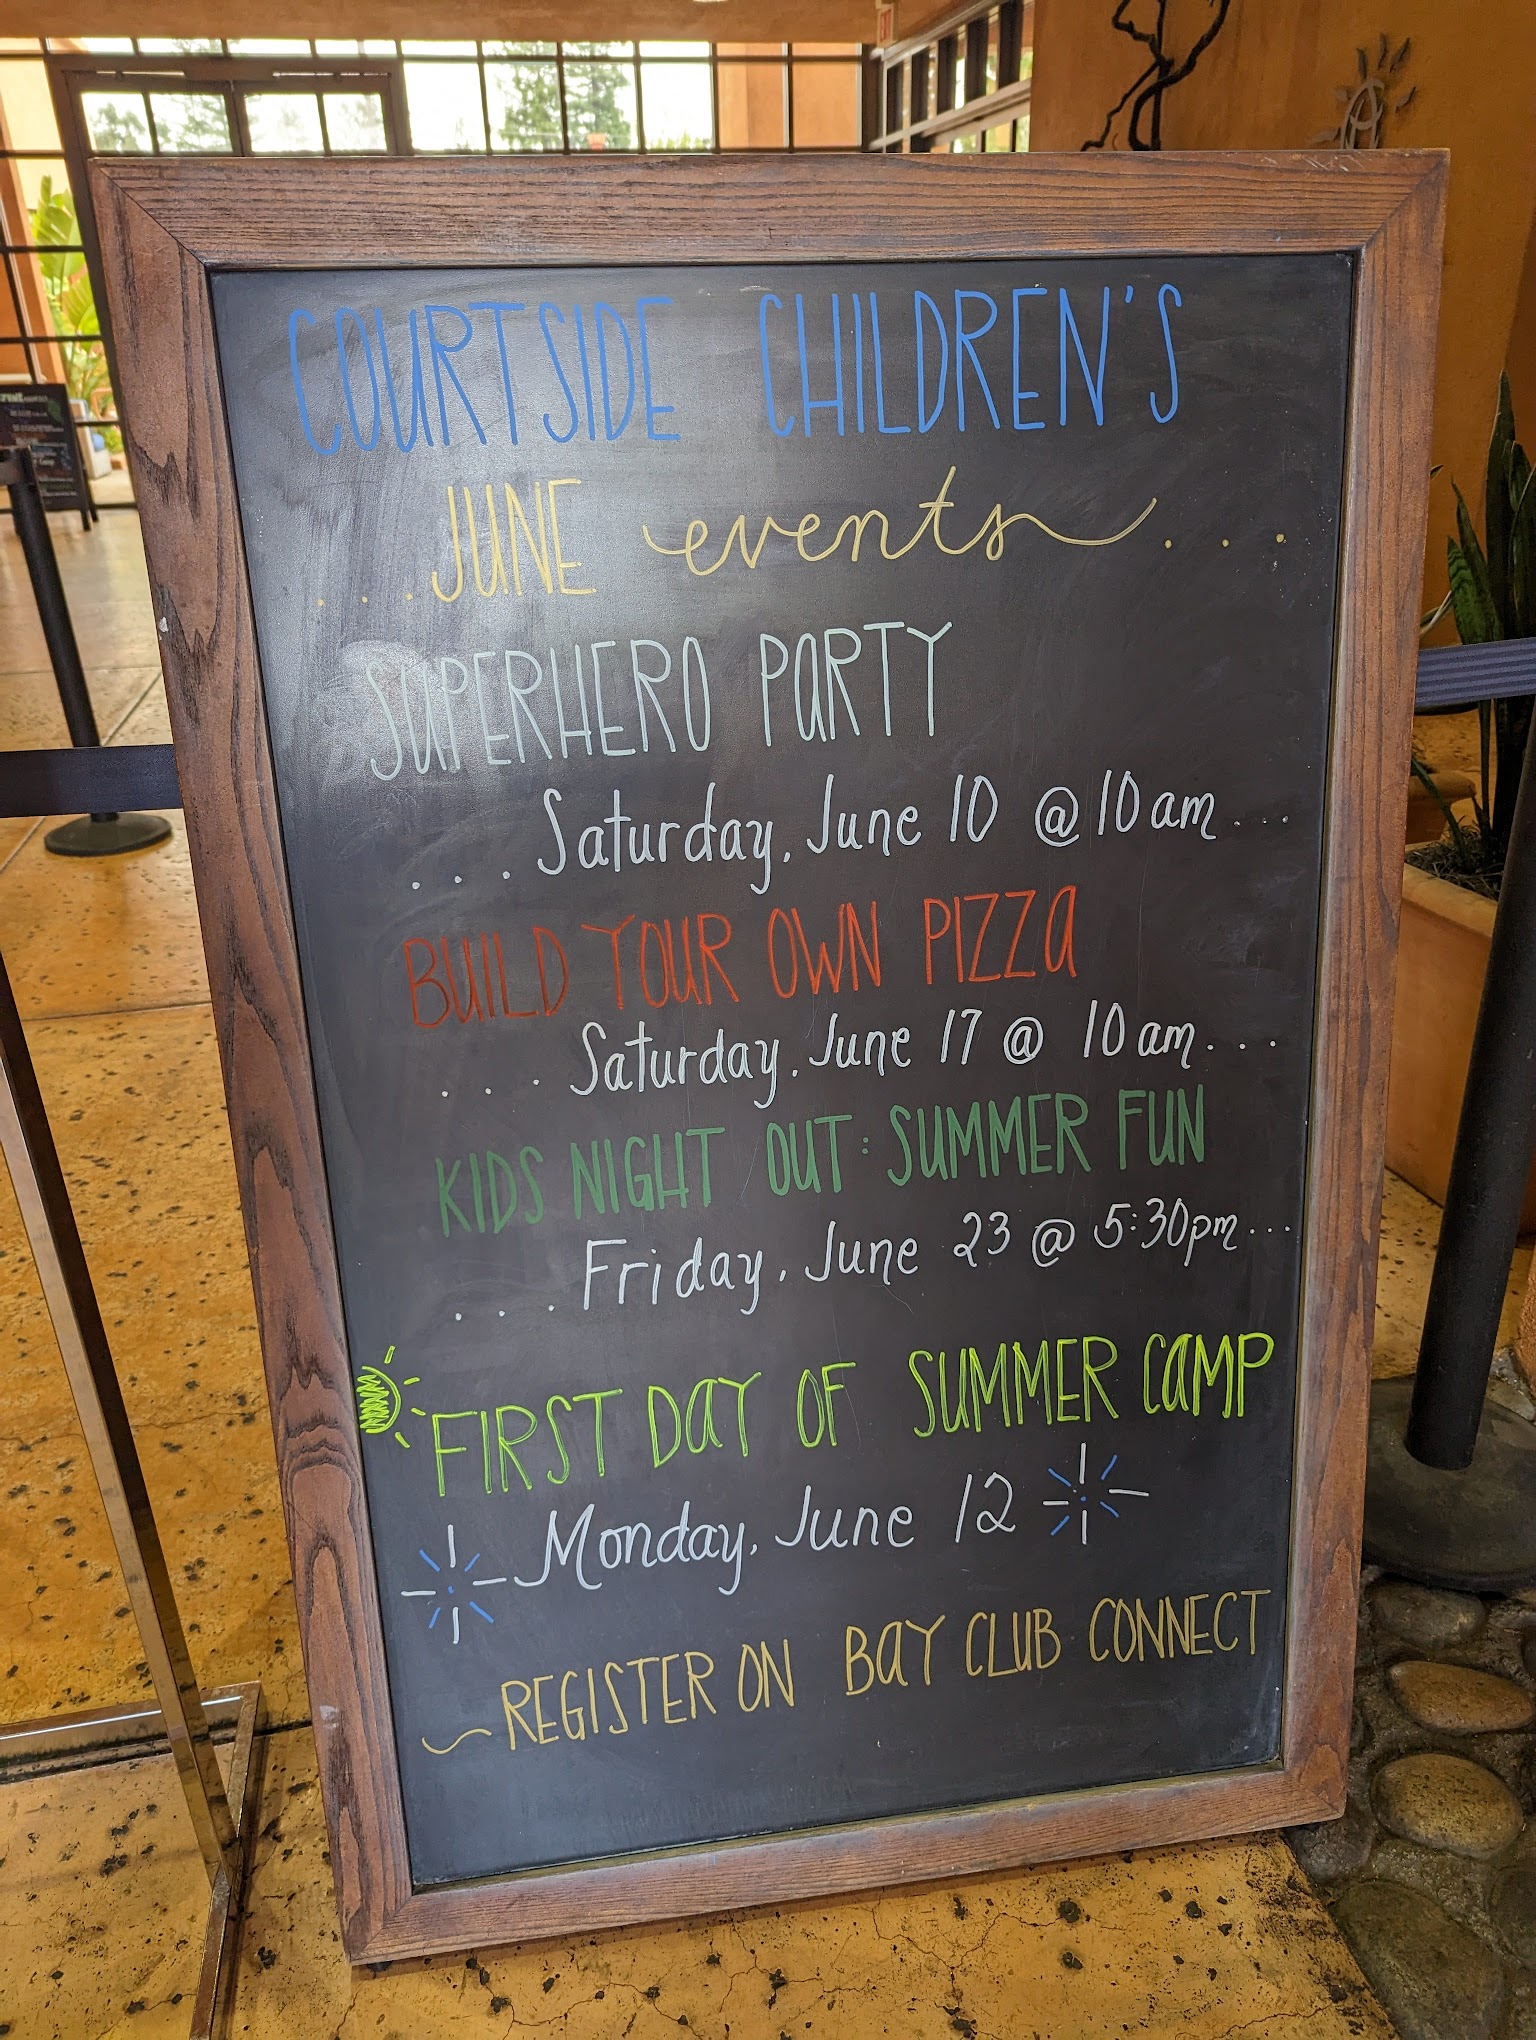 COURTSIDE CHILDREN'S
...JUNE events...
SUPERHERO PARTY
....Saturday, June 10 @ 10am...
BUILD YOUR OWN PIZZA
....Saturday, June 17 @ 10am....
KIDS NIGHT OUT: SUMMER FUN
....Friday, June 23 @ 5:30pm...
FIRST DAY OF SUMMER CAMP
Monday, June 12
~REGISTER ON BAY CLUB CONNECT